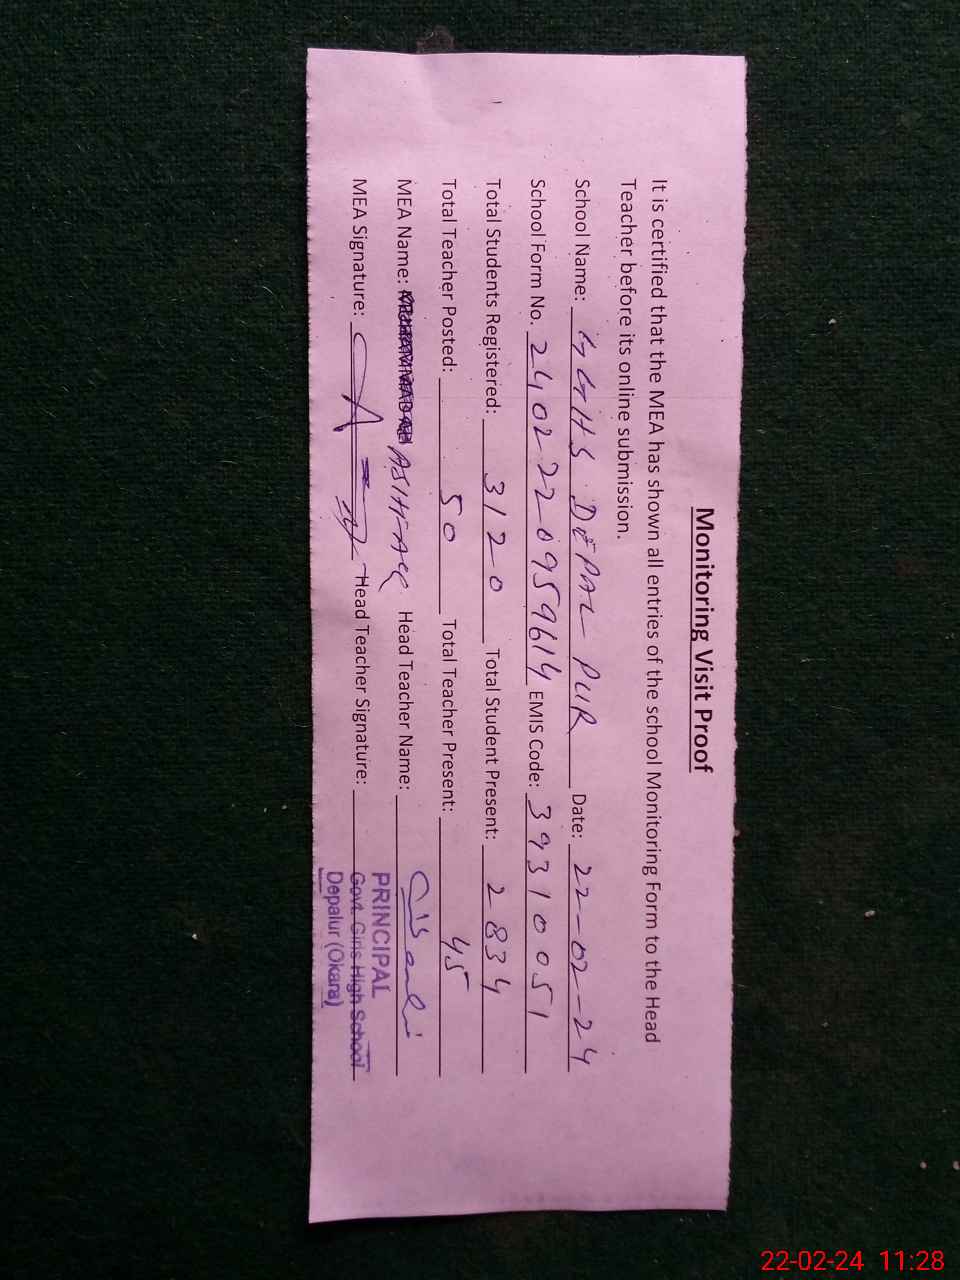 Monitoring Visit Proof
It is certified that the MEA has shown all entries of the school Monitoring Form to the Head
Teacher before its online submission.
School Name: GGHS DEPAL PUR Date: 22-02-24
School Form No. 2402220959614 EMIS Code: 39310051
Total Students Registered: 3120 Total Student Present: 2834
Total Teacher Posted: 50 Total Teacher Present: 45
MEA Name: Head Teacher Name:
MEA Signature: Head Teacher Signature:
PRINCIPAL
Govt. Girls High School
Depalur (Okara)
22-02-24 11:28